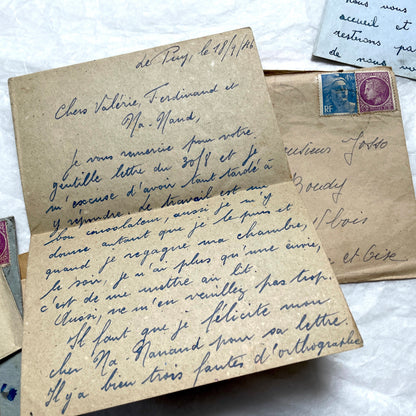 nous vous
accueil et
resterons pas
de nous
de Puy, le 18/9/46
Chers Valérie, Ferdinand et
Na-Nand,
Je vous remercie pour votre
gentille lettre du 30/8 et je
m'excuse d'avoir tant tardé à
y répondre. Le travail est un
bon consolateur, aussi je m'y
donne autant que je le puis et
quand je regagne ma chambre,
le soir, je n'ai plus qu'une envie,
c'est de me mettre au lit.
Aussi, ne m'en veuillez pas trop.
Il faut que je félicite mon
cher Na-Nanand pour sa lettre.
Il y a bien trois fautes d'orthographe
RF
Monsieur Josso
Boudy
et Oise